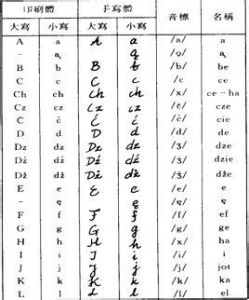 印刷體 手寫體 音標 名稱
大寫 小寫 大寫 小寫
A a A a /a/ a
– ą ą /ǫ/ ą
B b B b /b/ be
C c C c /c ce
Ch ch Ch ch /x/ ce-ha
Cz cz Cz cz /č/ cze
Ć ć Ć ć /ć/ cie
D d D d /d/ de
Dz dz Dz dz /ʒ/ dze
Dź dź Dź dź /ʒ́/ dzie
Dż dż Dż dż /ǯ/ dże
E e E e /e/ e
– ę ę /ę/ ę
F f F f /f/ ef
G g G g /g/ ge
H h H h /x/ ha
I i I i /i/ i
J j J j /j/ jot
K k K k /k/ ka
L l L l /l/ el